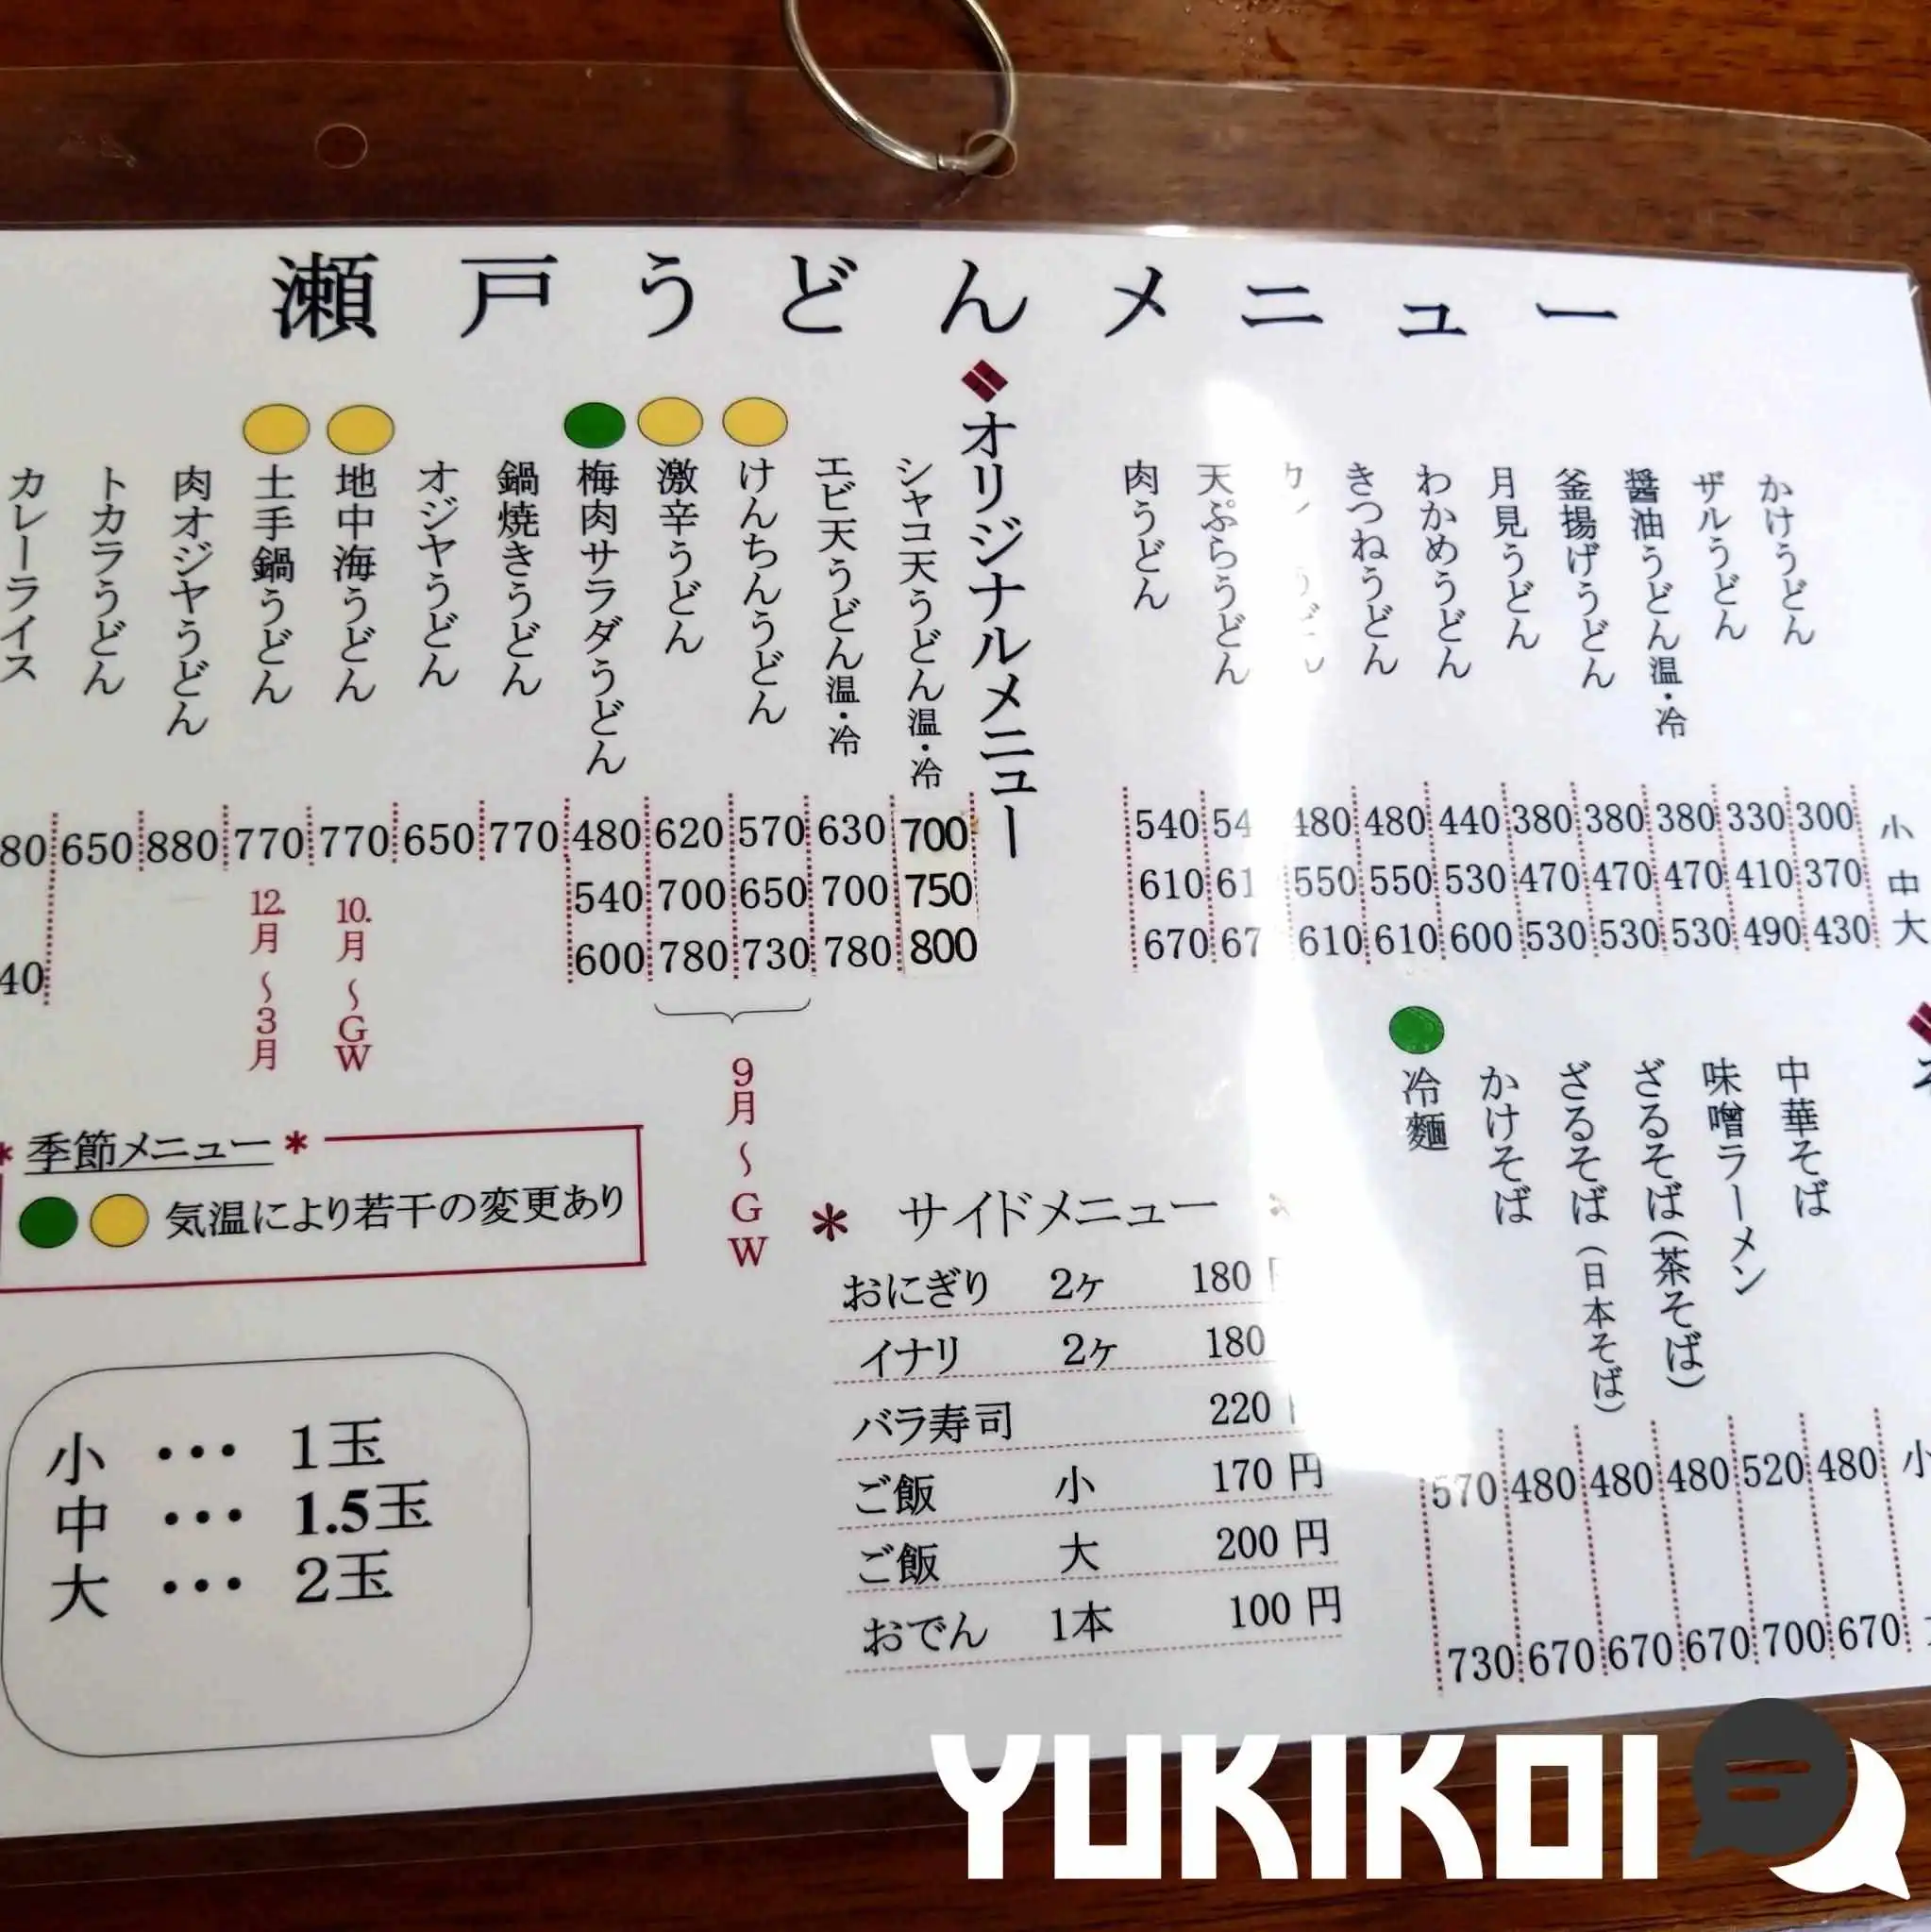 瀬戸うどんメニュー
かけうどん
ザルうどん
醤油うどん温・冷
釜揚げうどん
月見うどん
わかめうどん
きつねうどん
天ぷらうどん
肉うどん
小 300 330 380 380 380 440 480 480 54 540
中 370 410 470 470 470 530 550 550 61 610
大 430 490 530 530 530 600 610 610 67 670
オリジナルメニュー
シャコ天うどん温・冷
エビ天うどん温・冷
けんちんうどん
激辛うどん
梅肉サラダうどん
鍋焼きうどん
オジヤうどん
地中海うどん
土手鍋うどん
肉オジヤうどん
トカラうどん
カレーライス
700 630 570 620 480 770 650 770 770 880 650 80
750 700 650 700 540
800 780 730 780 600 40
9月～GW
10.月～GW
12.月～3月
中華そば
味噌ラーメン
ざるそば(茶そば)
ざるそば(日本そば)
かけそば
冷麺
小 480 520 480 480 480 570
670 700 670 670 670 730
*季節メニュー*
気温により若干の変更あり
* サイドメニュー
おにぎり 2ヶ 180
イナリ 2ヶ 180
バラ寿司 220
ご飯 小 170 円
ご飯 大 200 円
おでん 1本 100 円
小 ・・・ 1玉
中 ・・・ 1.5玉
大 ・・・ 2玉
YUKIKOI